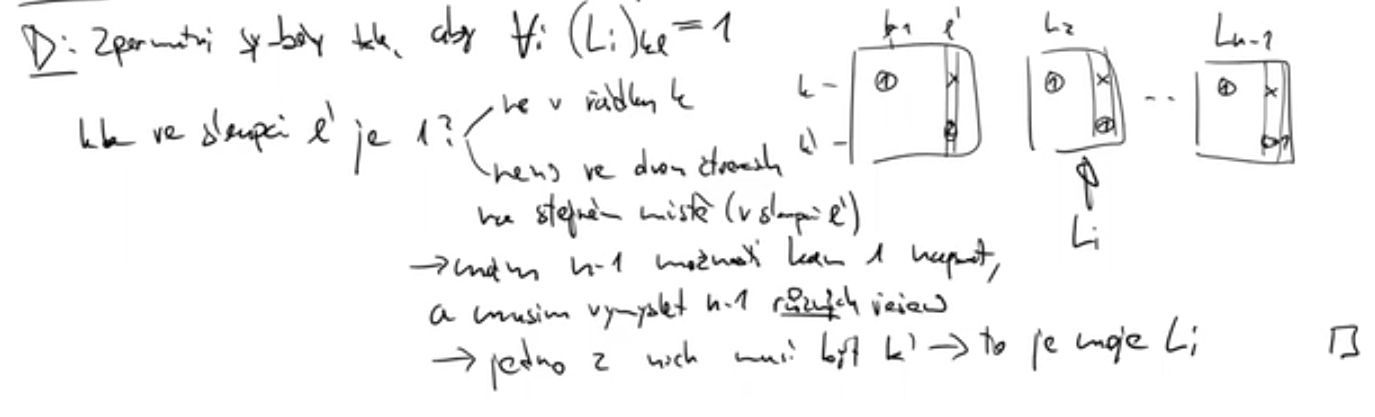 D: Zpermutuji symboly tak, aby ∀i (Li)kl = 1
kde ve sloupci l' je 1?
ne v řádku k
není ve dvou čtvercích
na stejném místě (v sloupci l')
→ mám n-1 možností kam 1 napsat,
a musím vymyslet n-1 různých řešení
→ jedno z nich musí být k' → to je moje Li
L1 l' L2 Ln-1
k - 1 x 1 x .. 1 x
k' - 1 1 1
Li